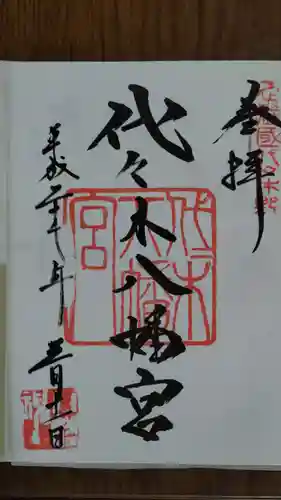 奉拝
代々木八幡宮
平成二十年三月十一日
代々木八幡宮